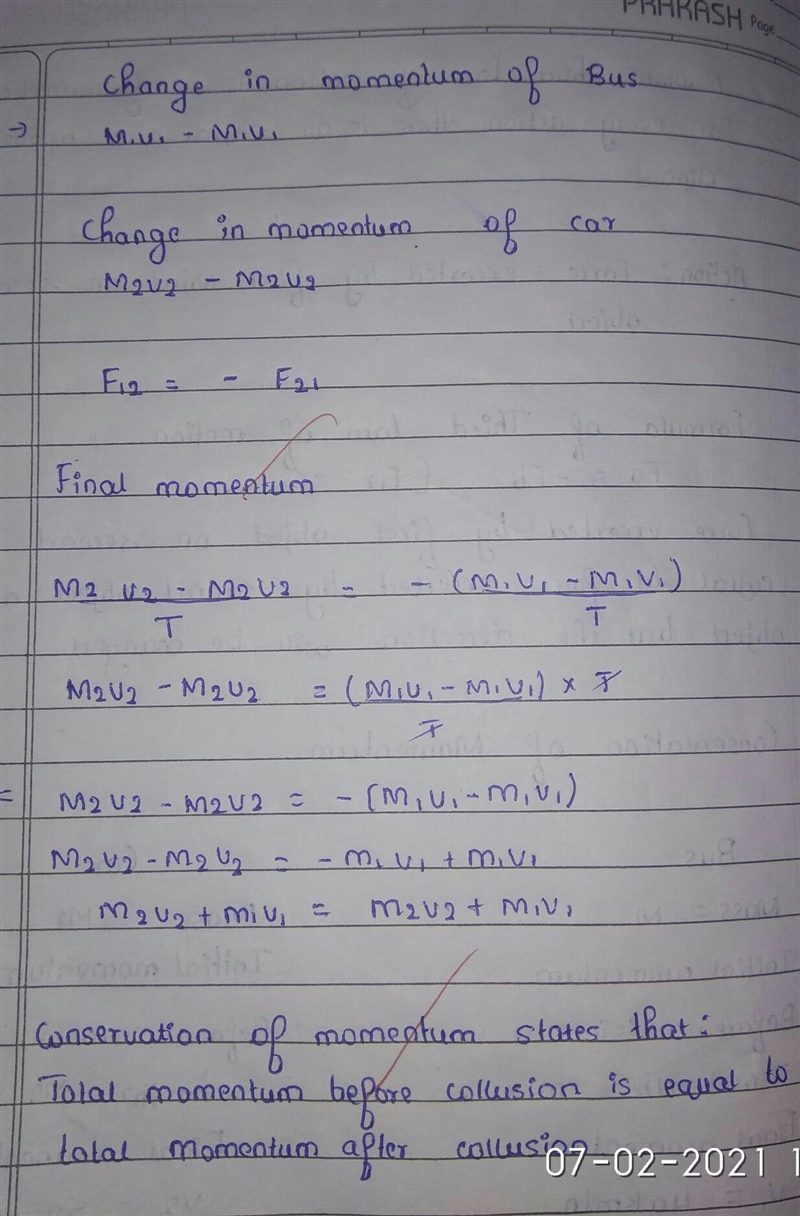 PRAKASH Page
Change in momentum of Bus
→ M₁V₁ - M₁U₁
Change in momentum of car
M2V2 - M2U2
F12 = - F21
Final momentum
M2 V2 - M2U2 = - (M₁V₁ - M₁U₁)
T T
M2V2 - M2U2 = (M1V1 - M1U1) x T
T
= M2V2 - M2U2 = - (M1V1 - M1U1)
M2V2 - M2U2 = - M1V1 + M1U1
M2V2 + M1V1 = M2U2 + M1U1
Conservation of momentum states that :
Total momentum before collusion is equal to
total momentum after collusion
07-02-2021 1